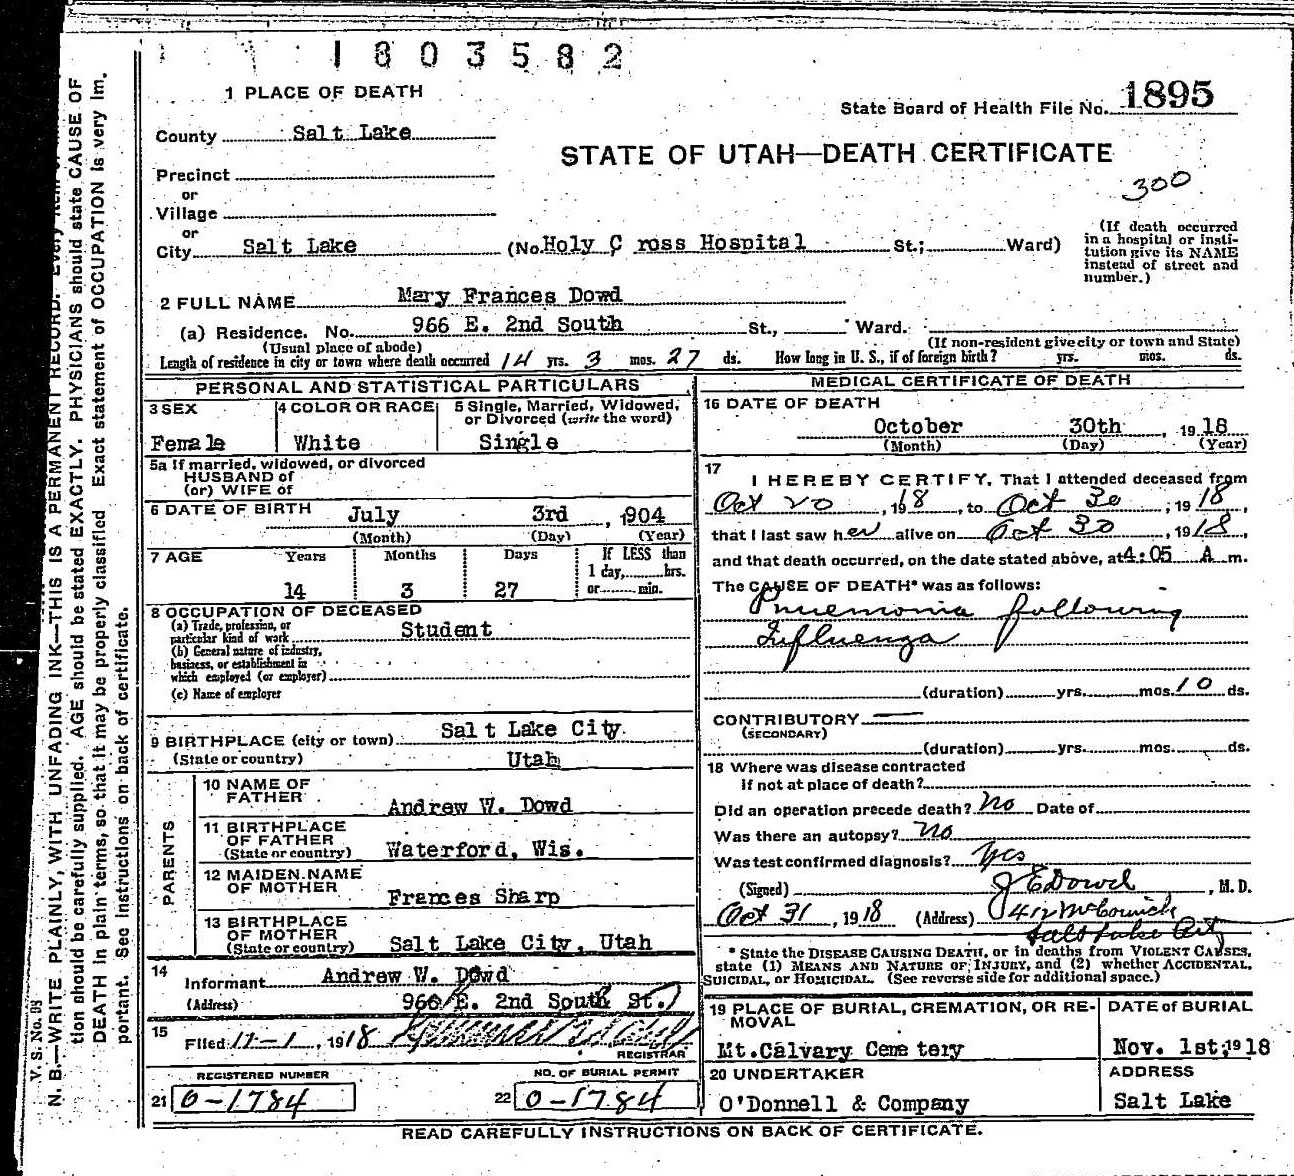 1803582
1 PLACE OF DEATH
State Board of Health File No. 1895
County Salt Lake
STATE OF UTAH—DEATH CERTIFICATE
300
Precinct
or
Village
or
City Salt Lake (No. Holy C ross Hospital St.; Ward)
(If death occurred
in a hospital or insti-
tution give its NAME
instead of street and
number.)
2 FULL NAME Mary Frances Dowd
(a) Residence. No. 966 E. 2nd South St., Ward.
(Usual place of abode) (If non-resident give city or town and State)
Length of residence in city or town where death occurred 14 yrs. 3 mos. 27 ds. How long in U. S., if of foreign birth? yrs. mos. ds.
PERSONAL AND STATISTICAL PARTICULARS
3 SEX
Female
4 COLOR OR RACE
White
5 Single, Married, Widowed,
or Divorced (write the word)
Single
5a If married, widowed, or divorced
HUSBAND of
(or) WIFE of
6 DATE OF BIRTH July 3rd, 1904
(Month) (Day) (Year)
7 AGE Years Months Days If LESS than
1 day, hrs.
14 3 27 or min.
8 OCCUPATION OF DECEASED
(a) Trade, profession, or
particular kind of work Student
(b) General nature of industry,
business, or establishment in
which employed (or employer)
(c) Name of employer
9 BIRTHPLACE (city or town) Salt Lake City
(State or country) Utah
PARENTS
10 NAME OF
FATHER Andrew W. Dowd
11 BIRTHPLACE
OF FATHER
(State or country) Waterford, Wis.
12 MAIDEN NAME
OF MOTHER Frances Sharp
13 BIRTHPLACE
OF MOTHER
(State or country) Salt Lake City, Utah
14
Informant Andrew W. Dowd
(Address) 966 E. 2nd South St.
15
Filed 11-1, 1918
REGISTRAR
REGISTERED NUMBER NO. OF BURIAL PERMIT
21 0-1784 22 0-1784
MEDICAL CERTIFICATE OF DEATH
16 DATE OF DEATH
October 30th, 1918
(Month) (Day) (Year)
17
I HEREBY CERTIFY, That I attended deceased from
Oct 20, 1918, to Oct 30, 1918,
that I last saw her alive on Oct 30, 1918,
and that death occurred, on the date stated above, at 4:05 A m.
The CAUSE OF DEATH* was as follows:
Pneumonia following
Influenza
(duration) yrs. mos. 10 ds.
CONTRIBUTORY —
(SECONDARY)
(duration) yrs. mos. ds.
18 Where was disease contracted
if not at place of death?
Did an operation precede death? No Date of
Was there an autopsy? No
Was test confirmed diagnosis? Yes
(Signed) J E Dowd, M. D.
Oct 31, 1918 (Address) 412 McCornick
Salt Lake City
* State the DISEASE CAUSING DEATH, or in deaths from VIOLENT CAUSES,
state (1) MEANS AND NATURE OF INJURY, and (2) whether ACCIDENTAL,
SUICIDAL, or HOMICIDAL. (See reverse side for additional space.)
19 PLACE OF BURIAL, CREMATION, OR RE-
MOVAL
Mt. Calvary Cemetery
DATE of BURIAL
Nov. 1st, 1918
20 UNDERTAKER
O'Donnell & Company
ADDRESS
Salt Lake
READ CAREFULLY INSTRUCTIONS ON BACK OF CERTIFICATE.
V. S. No.
N. B.—WRITE PLAINLY, WITH UNFADING INK—THIS IS A PERMANENT RECORD. Every item
tion should be carefully supplied. AGE should be stated EXACTLY. PHYSICIANS should state CAUSE OF
DEATH in plain terms, so that it may be properly classified Exact statement of OCCUPATION is very im-
portant. See Instructions on back of certificate.